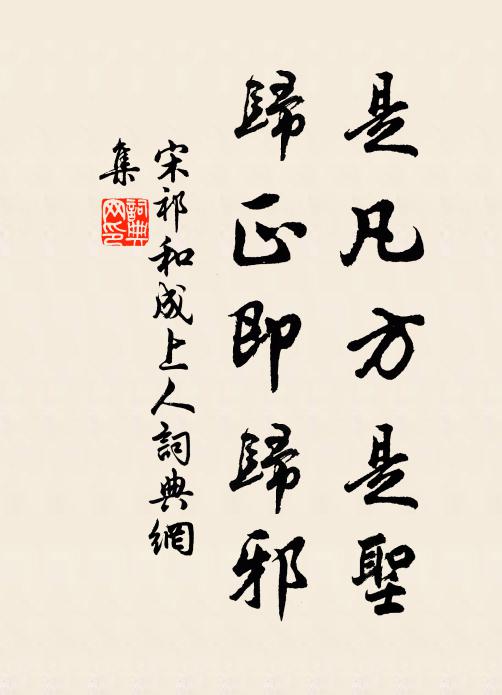 是凡方是聖
歸正即歸邪
宋祁和成上人詞典網
集
詞典網印